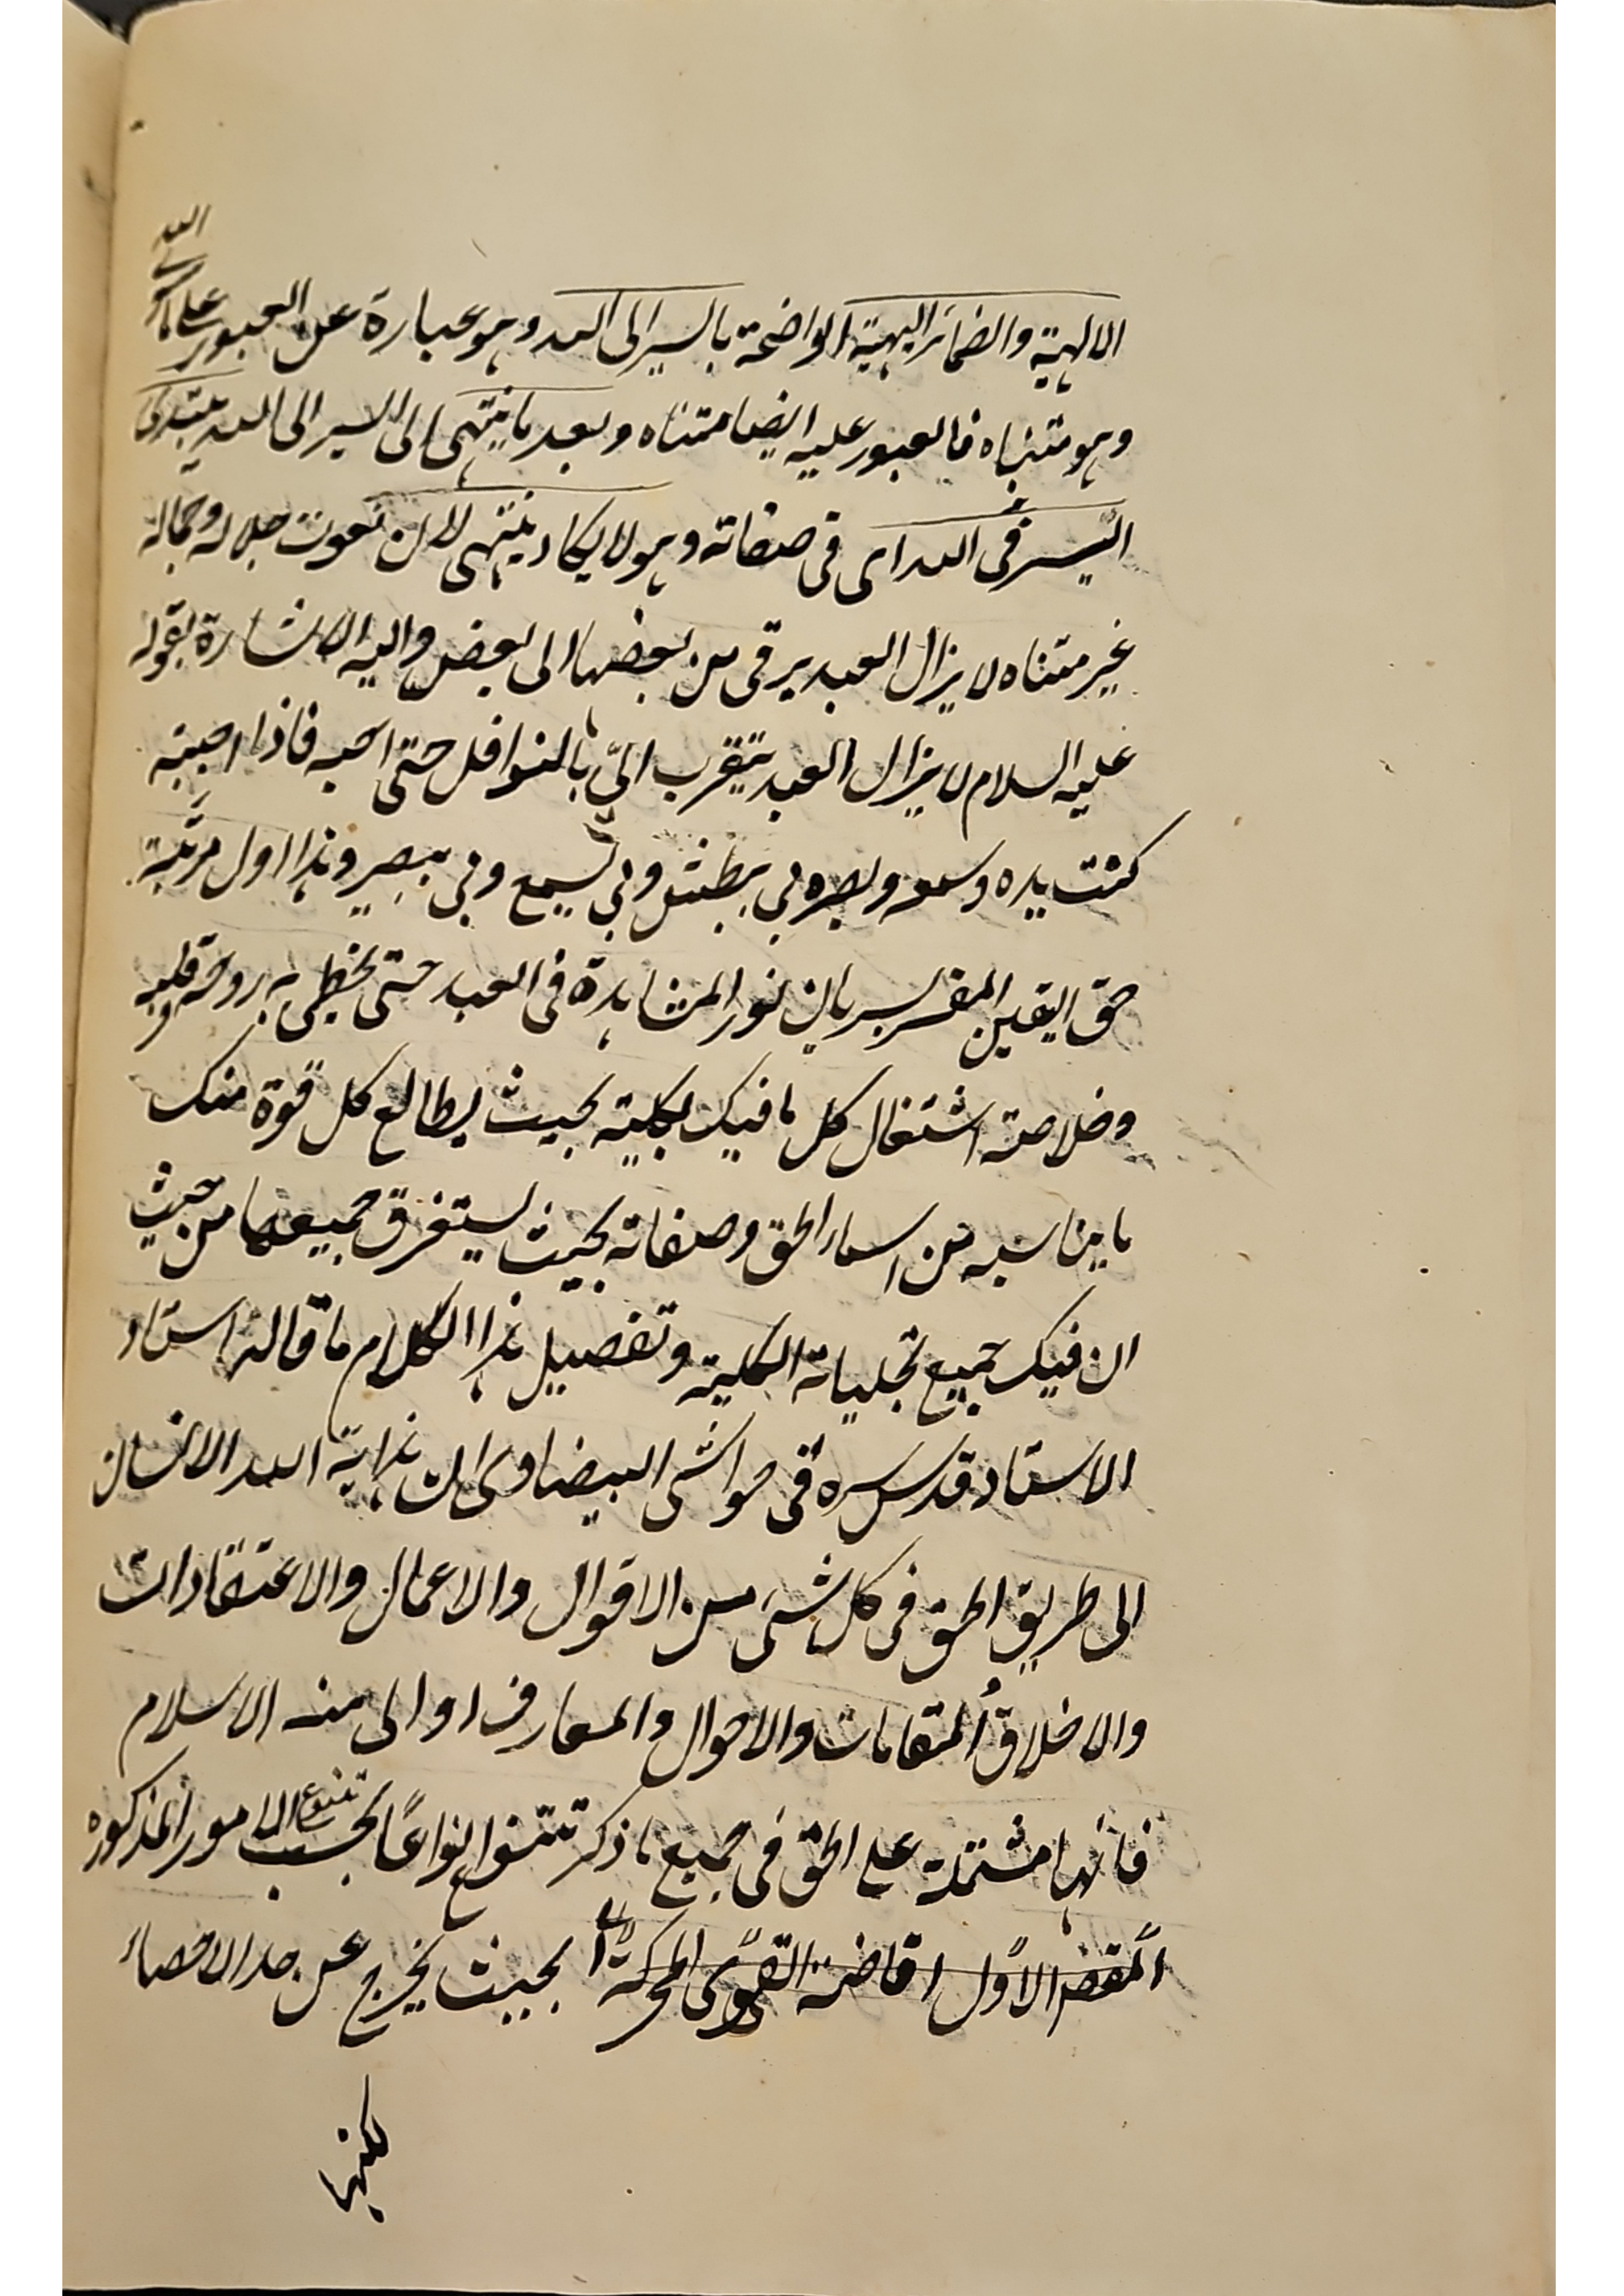 الالهية والضمائر البهية الواضحة بالسير الى الله وهو عبارة عن العبور على ما سوى الله
وهو متناه فالعبور عليه ايضا متناه وبعد ما ينتهى الى السير الى الله يبتدئ
السير فى الله اى فى صفاته وهو لا يكاد ينتهى لان نعوت جلاله وجماله
غير متناه لا يزال العبد يرقى من بعضها الى بعض واليه الاشارة بقوله
عليه السلام لا يزال العبد يتقرب الىّ بالنوافل حتى احبه فاذا احببته
كنت يده وسمعه وبصره بي يبطش وبي يسمع وبي يبصر وهذا اول مرتبة
حق اليقين المفسر بسريان نور المشاهدة فى العبد حتى يحظى به روحه وقلبه
وخلاصته اشتغال كل ما فيك بكليته بحيث يطالع كل قوة منك
ما يناسبه من اسماء الحق وصفاته بحيث يستغرق جميعها من حيث
ان فيك جميع تجلياته الكلية وتفصيل هذا الكلام ما قاله استاد
الاستاد قدس سره فى حواشى البيضاوى ان هداية الله الانسان
الى طريق الحق فى كل شئ من الاقوال والاعمال والاعتقادات
والاخلاق والمقامات والاحوال والمعارف اوالى منه الاسلام
فانها مشتملة على الحق فى جميع ما ذكر تتنوع انواعًا بحسب تنوع الامور المذكوره
الاول افاضة القوى المحركة بحيث يخرج عن حد الاحصاء
لكنها